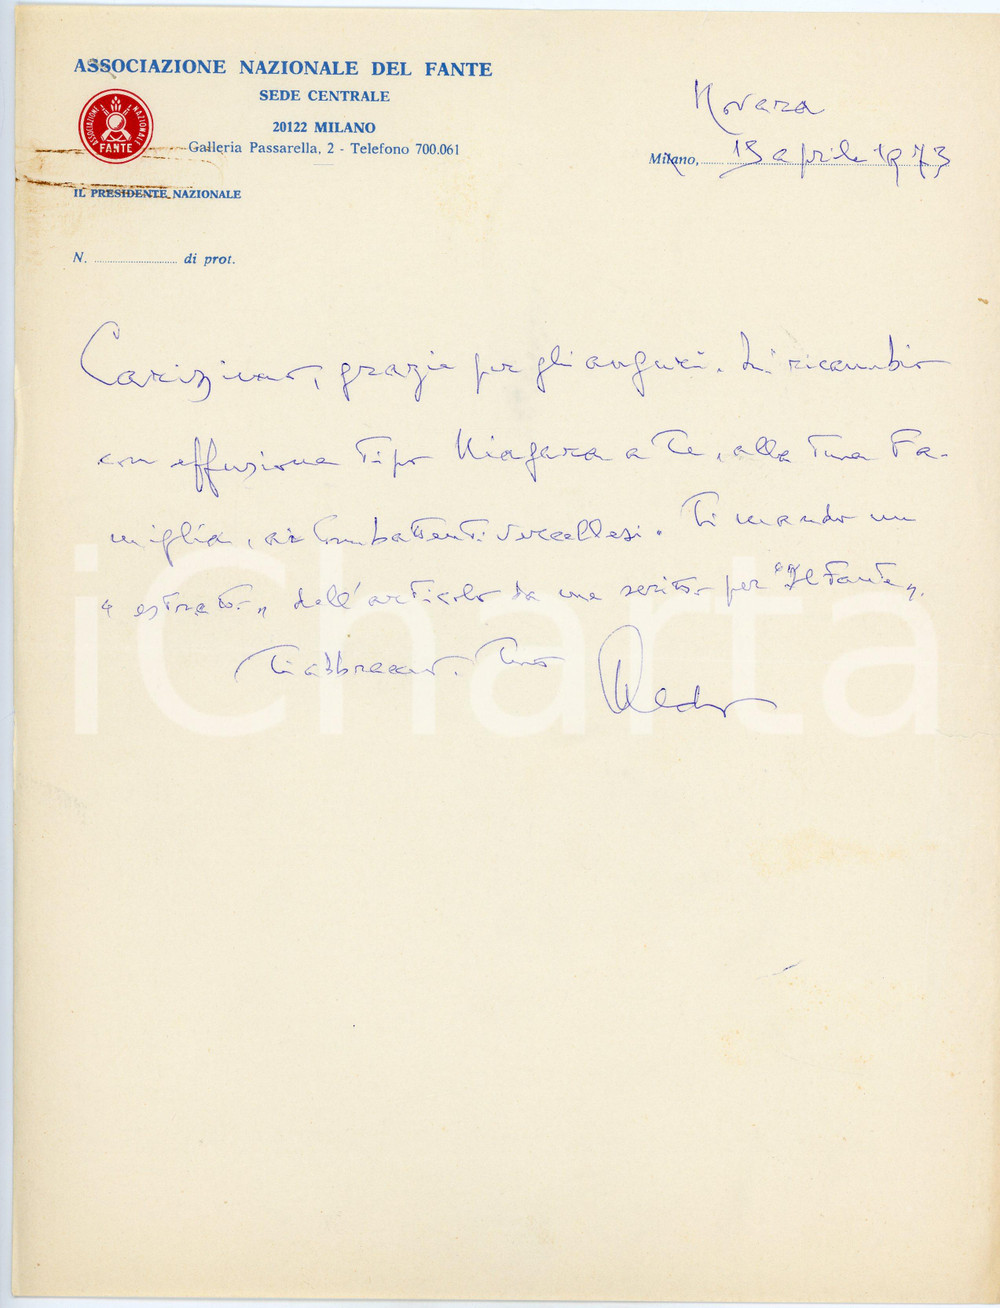 ASSOCIAZIONE NAZIONALE DEL FANTE
SEDE CENTRALE
20122 MILANO
Galleria Passarella, 2 - Telefono 700.061
ASSOCIAZIONE NAZIONALE
FANTE
IL PRESIDENTE NAZIONALE
Novara
Milano, 13 aprile 1973
N. di prot.
Carissimo, grazie per gli auguri. Li ricambio
con effusione tipo Niagara a Te, alla tua Fa-
miglia, ai Combattenti Vercellesi. Ti mando un
"estratto" dell'articolo da me scritto per "Il Fante".
Ti abbraccio. Tuo Aldo
iCharta